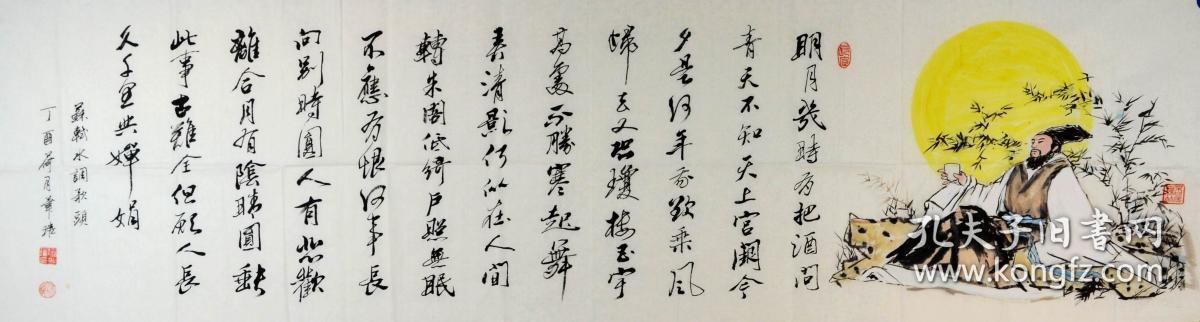 明月幾時有把酒問
青天不知天上宮闕今
夕是何年我欲乘風
歸去又恐瓊樓玉宇
高處不勝寒起舞
弄清影何似在人間
轉朱閣低綺戶照無眠
不應有恨何事長
向別時圓人有悲歡
離合月有陰晴圓缺
此事古難全但願人長
久千里共嬋娟
蘇軾水調歌頭
丁酉荷月
孔夫子旧书网
www.kongfz.com